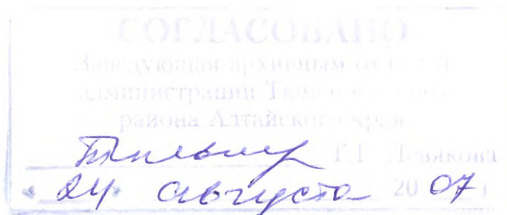 СОГЛАСОВАНО
Заведующая архивным отделом
администрации Тюменцевского
района Алтайского края
Г.Г. Левякова
« 24 » августа 2007 г